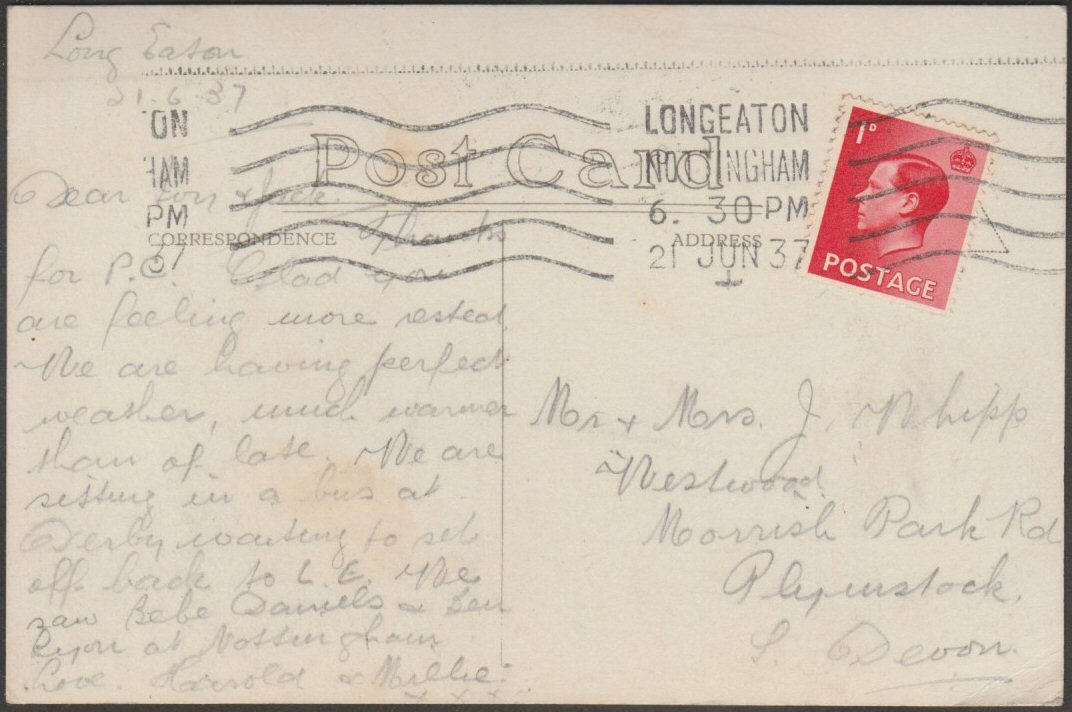 Long Eaton
21.6.37
ON
HAM
PM
37
LONGEATON
NOTTINGHAM
6. 30 PM
21 JUN 37
1D
POSTAGE
Post Card
CORRESPONDENCE
ADDRESS
Dear & Jack.
Thanks
for P.C. Glad you
are feeling more rested
We are having perfect
weather, much warmer
than of late. We are
sitting in a bus at
Derby waiting to set
off back to L. E. We
saw Bebe Daniels & Ben
Lyon at Nottingham
Love. Harold & Millie.
x x x
Mr & Mrs. J. Whipp
"Westwood"
Morrish Park Rd
Plymstock.
S. Devon.